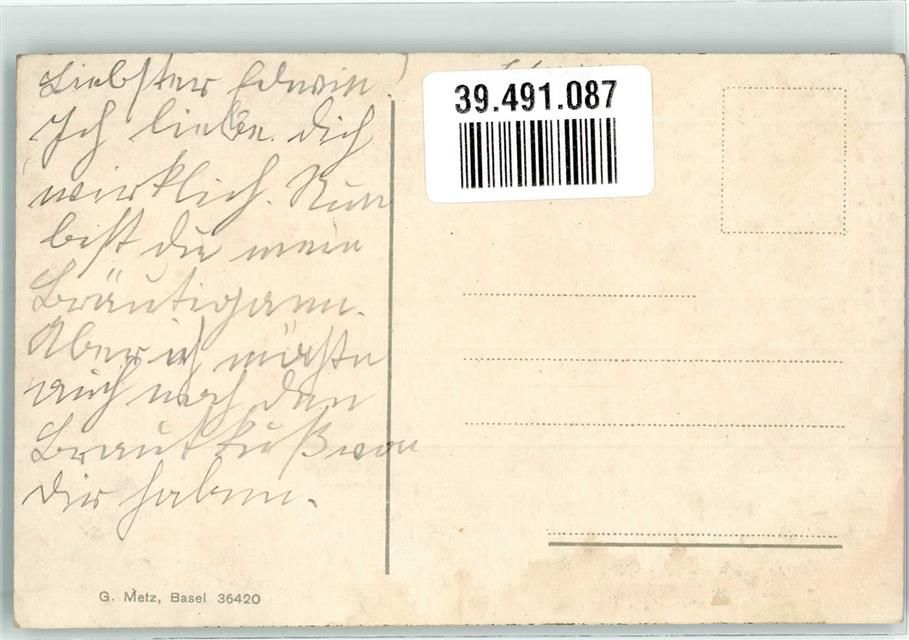 Liebster Edwin!
Ich liebe dich
wirklich. Nun
bist du mein
Bräutigam.
Aber ich möchte
auch noch den
Brautkuß von
dir haben.
39.491.087
G. Metz, Basel 36420